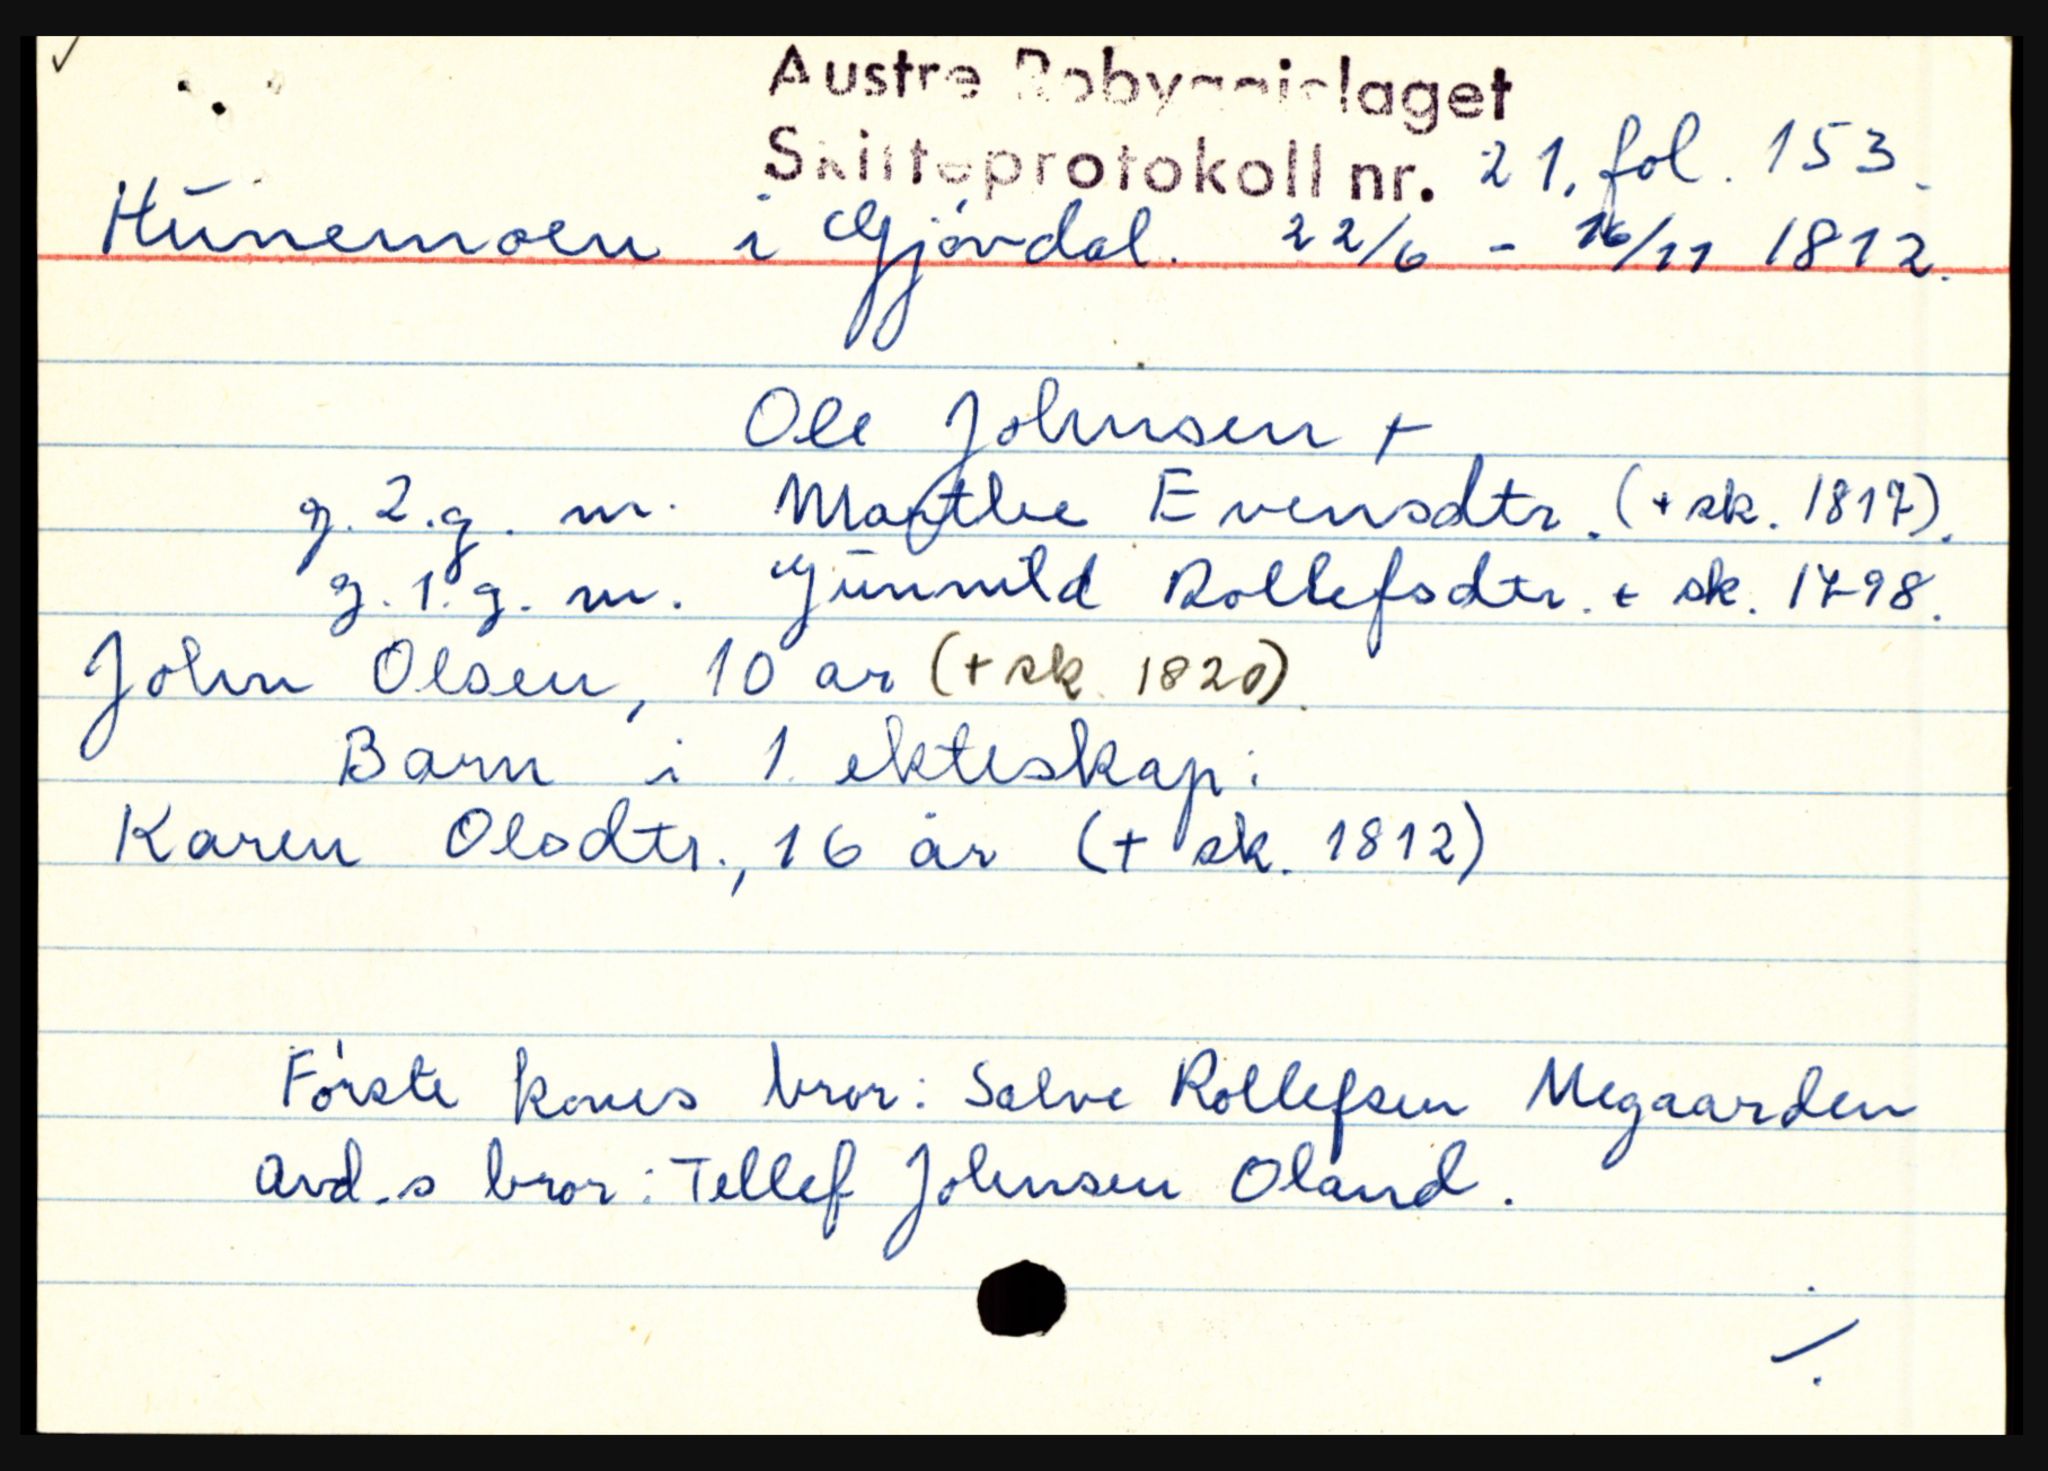 Austre Robyggjelaget
Skifteprotokoll nr. 21, fol. 153.
Hünemoen i Gjövdal. 22/6 - 16/11 1812.
Ole Johnsen +
g. 2. g. m. Marthe Evensdtr. (+ sk. 1817).
g. 1. g. m. Günnild Rollefsdtr. + sk. 1798.
John Olsen, 10 år (+ sk. 1820).
Barn i 1. ekteskap:
Karen Olsdtr., 16 år (+ sk. 1812)
Første kones bror: Salve Rollefsen Megaarden
Avd.s bror: Tellef Johnsen Oland.